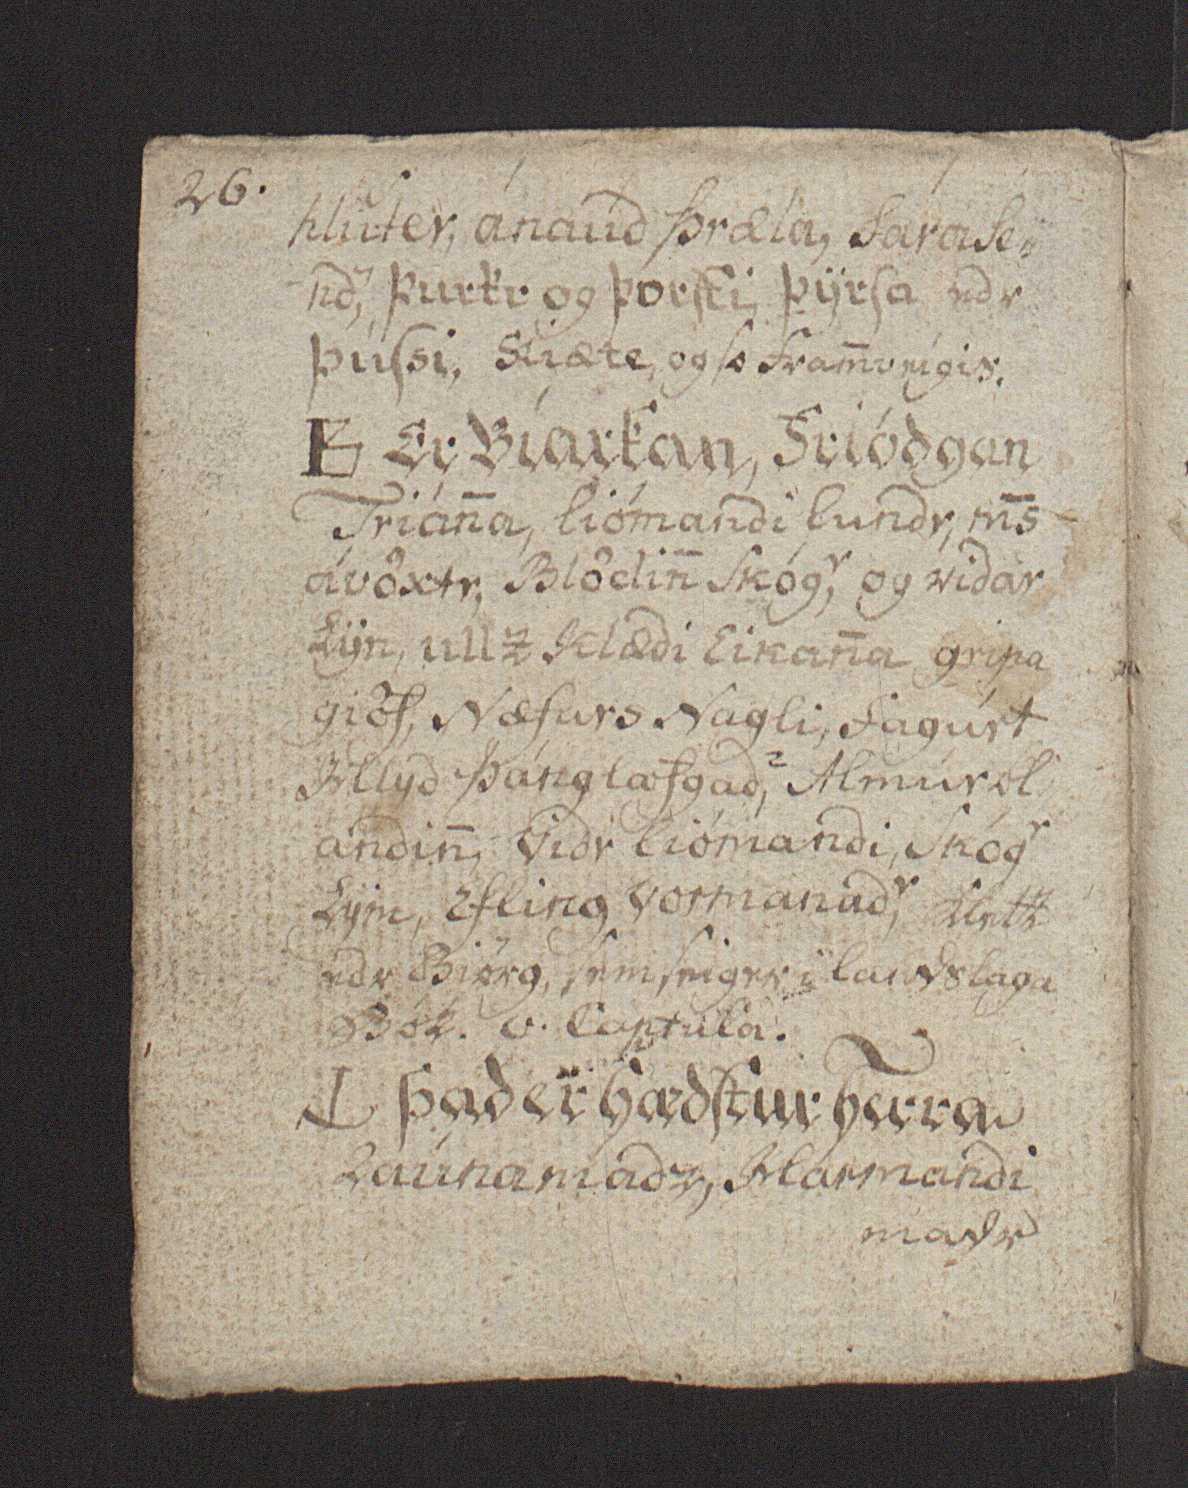 26.
hluter, ánaud þræla, Farase〟
nd͛, þurkr og þorsti, þÿrsa edr
þussi, Kiæte, og so fram̅veigis.
B Er Biarkan, Friódgan
Trián̅a, liómandi lundr, m̅s
ávôxtr, Blôdin̅ Skóg͛, og vidar
Lÿn, ull ꝛ klædi Eikan̅a gripa
giôf, Næfurs Nagli, Fagurt
Hlyd þánglafgad͛, Almur ol
andin̅, vidr liómandi, Skóg͛
Lÿm, Efling Vormanad͛,
edr Biôrg, sem seiger i landslaga
Bók. v. Captula.
þad er hædstur herra
Launamadr, Harmandi
madr